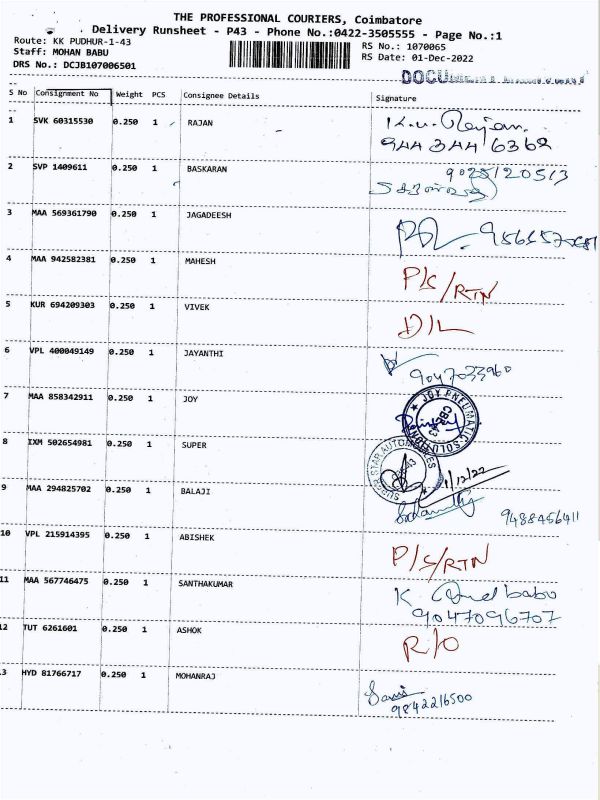 THE PROFESSIONAL COURIERS, Coimbatore
Delivery Runsheet - P43 - Phone No.:0422-3505555 - Page No.:1
Route: KK PUDHUR-1-43
RS No.: 1070065
Staff: MOHAN BABU
RS Date: 01-Dec-2022
DRS No.: DCJB107006501
S No Consignment No Weight PCS Consignee Details Signature
1 SVK 60315530 0.250 1 RAJAN K.V. Rajan.
944 344 6362
2 SVP 1409611 0.250 1 BASKARAN
3 MAA 569361790 0.250 1 JAGADEESH
4 MAA 942582381 0.250 1 MAHESH P/S/RTN
5 KUR 694209303 0.250 1 VIVEK D/L
6 VPL 400049149 0.250 1 JAYANTHI
9047033960
7 MAA 858342911 0.250 1 JOY JOY PNEUMATIC SOLUTIONS
8 IXM 502654981 0.250 1 SUPER SUPER STAR AUTOMOTIVES
1/12/22
9 MAA 294825702 0.250 1 BALAJI 9488456411
10 VPL 215914395 0.250 1 ABISHEK P/S/RTN
11 MAA 567746475 0.250 1 SANTHAKUMAR K babu
9047096707
12 TUT 6261601 0.250 1 ASHOK R/O
3 HYD 81766717 0.250 1 MOHANRAJ
9842216500